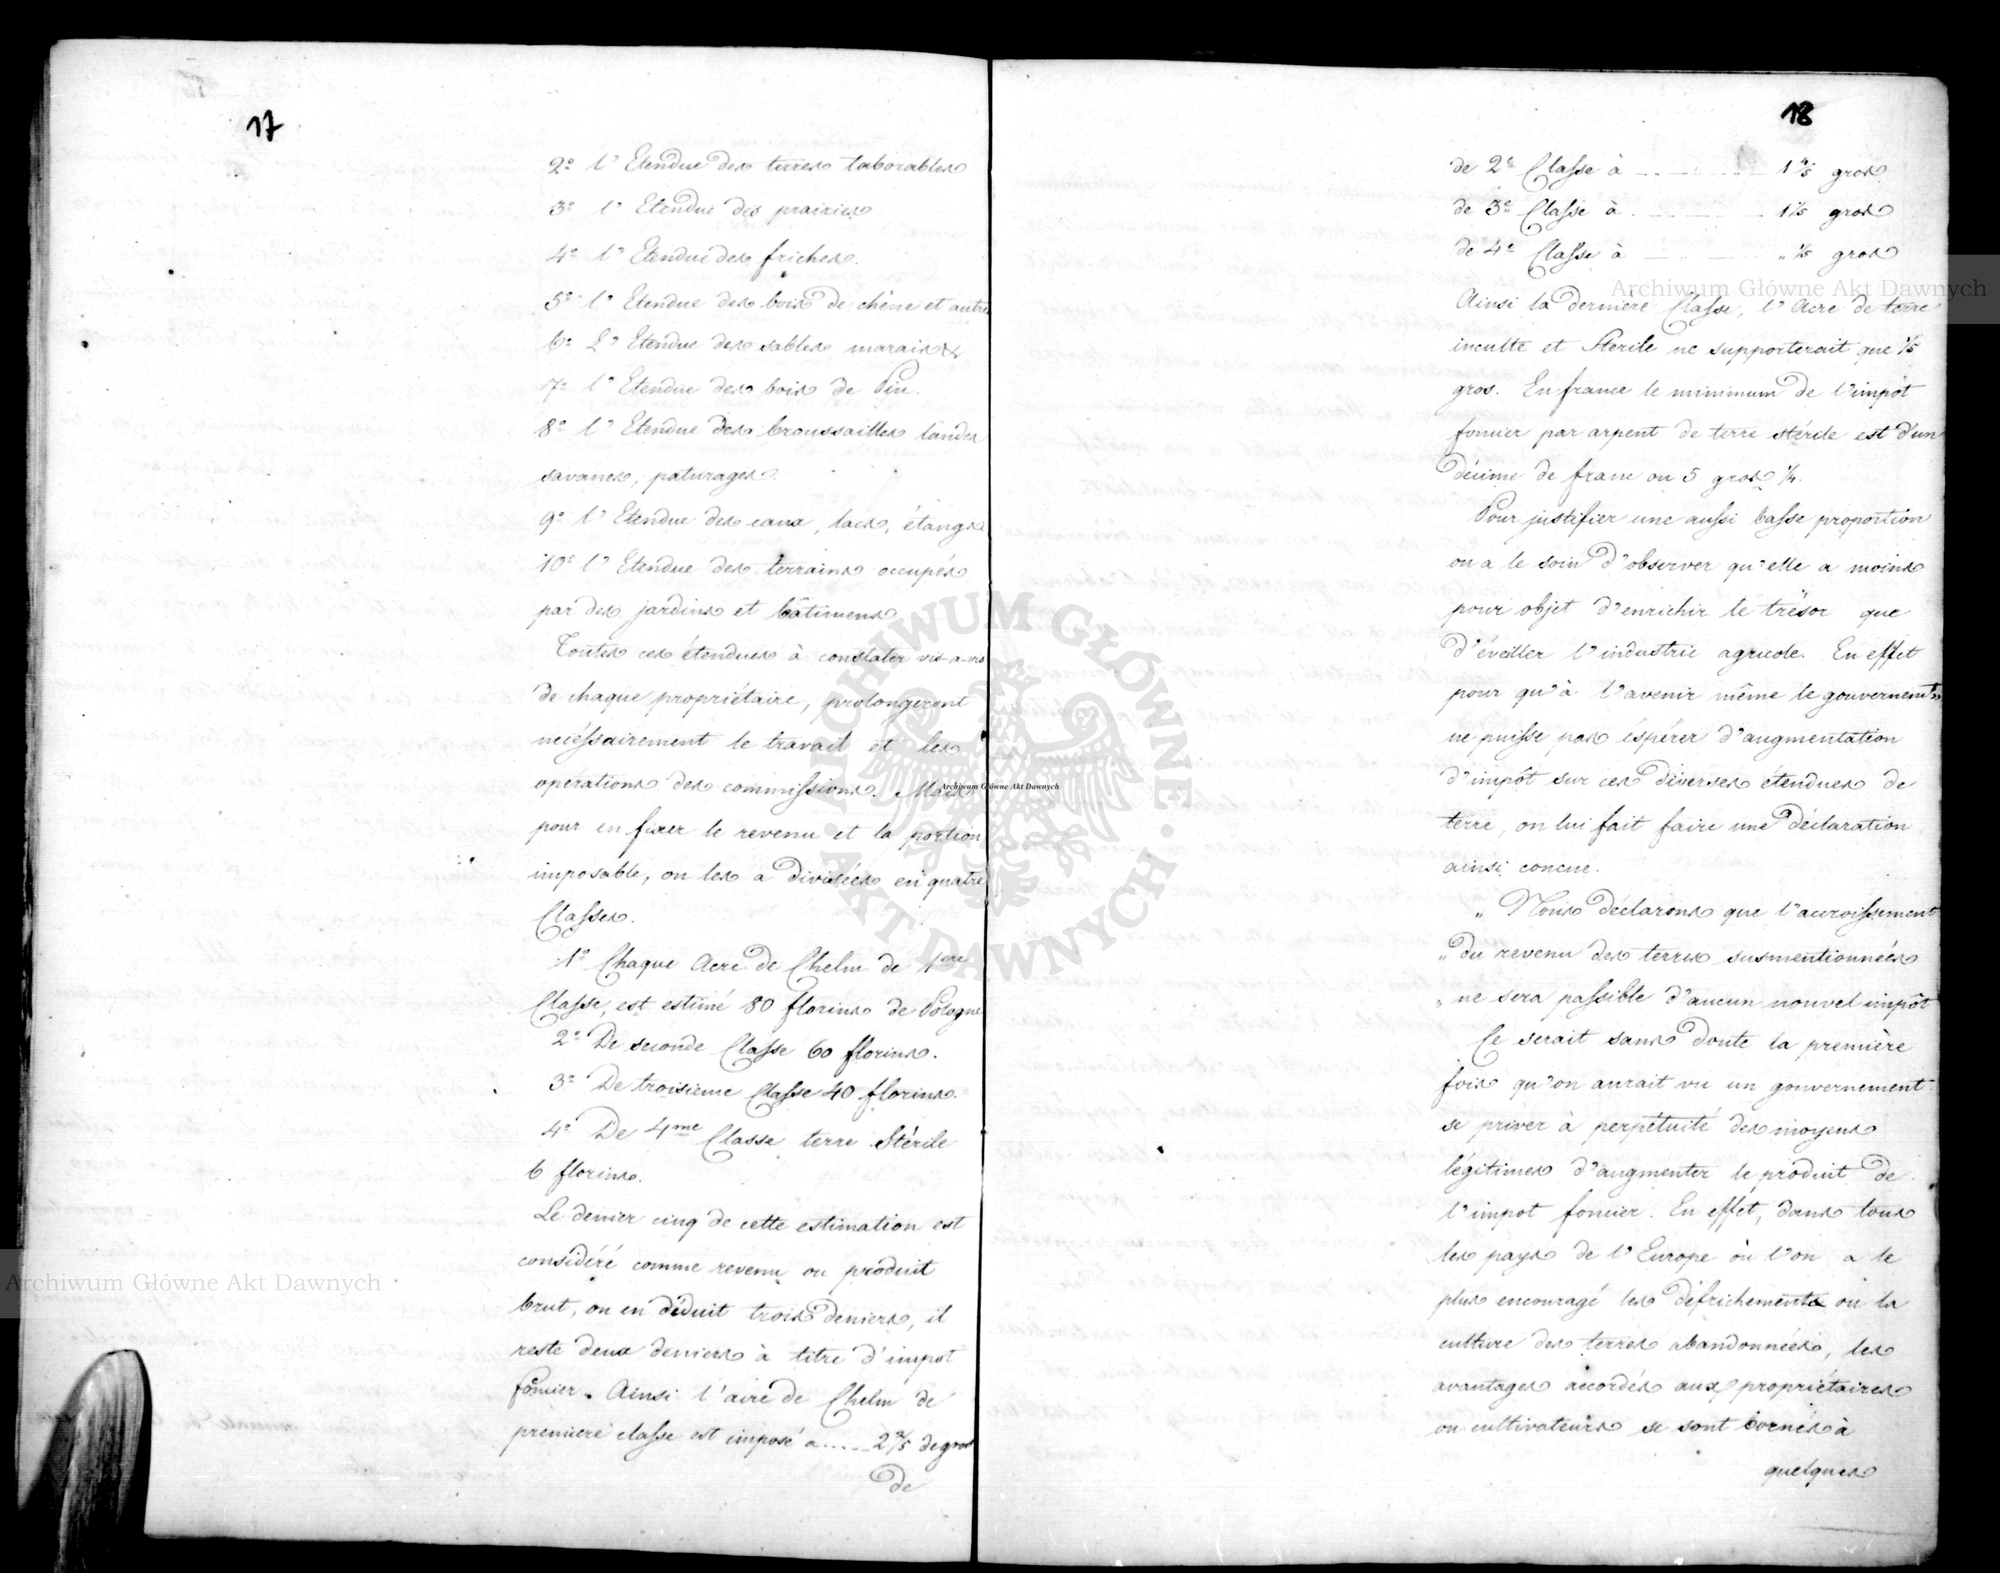 17
2º l'Etendue des terres laborables
3º l'Etendue des prairies
4º l'Etendue des friches.
5º l'Etendue des bois de chêne et autres
6º L'Etendue des sables marais &
7º l'Etendue des bois de Pin.
8º l'Etendue des broussailles landes
savanes, paturages.
9º l'Etendue des eaux, lacs, étangs
10º l'Etendue des terrains occupés
par des jardins et bâtimens
Toutes ces étendues à constater vis-a-vis
de chaque propriétaire, prolongeront
nécéssairement le travail et les
opérations des commissions. Mais
pour en fixer le revenu et la portion
imposable, on les a divisées en quatre
Classes.
1º Chaque Acre de Chelm de 1ere
Classe, est estimé 80 florins de Pologne
2º De seconde Classe 60 florins.
3º De troisieme Classe 40 florins.
4º De 4me Classe terre Stérile
6 florins.
Le denier cinq de cette estimation est
considéré comme revenu ou produit
brut, on en déduit trois deniers, il
reste deux deniers à titre d'impot
foncier. Ainsi l'aire de Chelm de
premiere classe est imposé a..... 2 2/5 de gros
de
18
de 2e Classe à 1 4/5 gros
de 3e Classe à 1 1/5 gros
de 4e Classe à " 1/5 gros
Ainsi la derniere Classe, l'Acre de terre
inculte et Sterile ne supporterait que 1/5
gros. En france le minimum de l'impôt
foncier par arpent de terre stérile est d'un
décime de franc ou 5 gros 1/4.
Pour justifier une aussi basse proportion
on a le soin d'observer qu'elle a moins
pour objet d'enrichir le trésor que
d'éveiller l'industrie agricole. En effet
pour qu'à l'avenir même le gouvernemt
ne puisse pas éspérer d'augmentation
d'impôt sur ces diverses étendues de
terre, on lui fait faire une déclaration
ainsi concue.
" Nous déclarons que l'accroissement
" du revenu des terres susmentionnées
" ne sera passible d'aucun nouvel impôt
Ce serait sans doute la première
fois qu'on aurait vu un gouvernement
se priver à perpétuité des moyens
légitimes d'augmenter le produit de
l'impot foncier. En effét, dans tous
les pays de l'Europe où l'on a le
plus encouragé les défrichements ou la
culture des terres abandonnées, les
avantages accordés aux propriétaires
ou cultivateurs se sont bornés à
quelques
Archiwum Główne Akt Dawnych
Archiwum Główne Akt Dawnych
Archiwum Główne Akt Dawnych
ARCHIWUM GŁÓWNE · AKT DAWNYCH ·